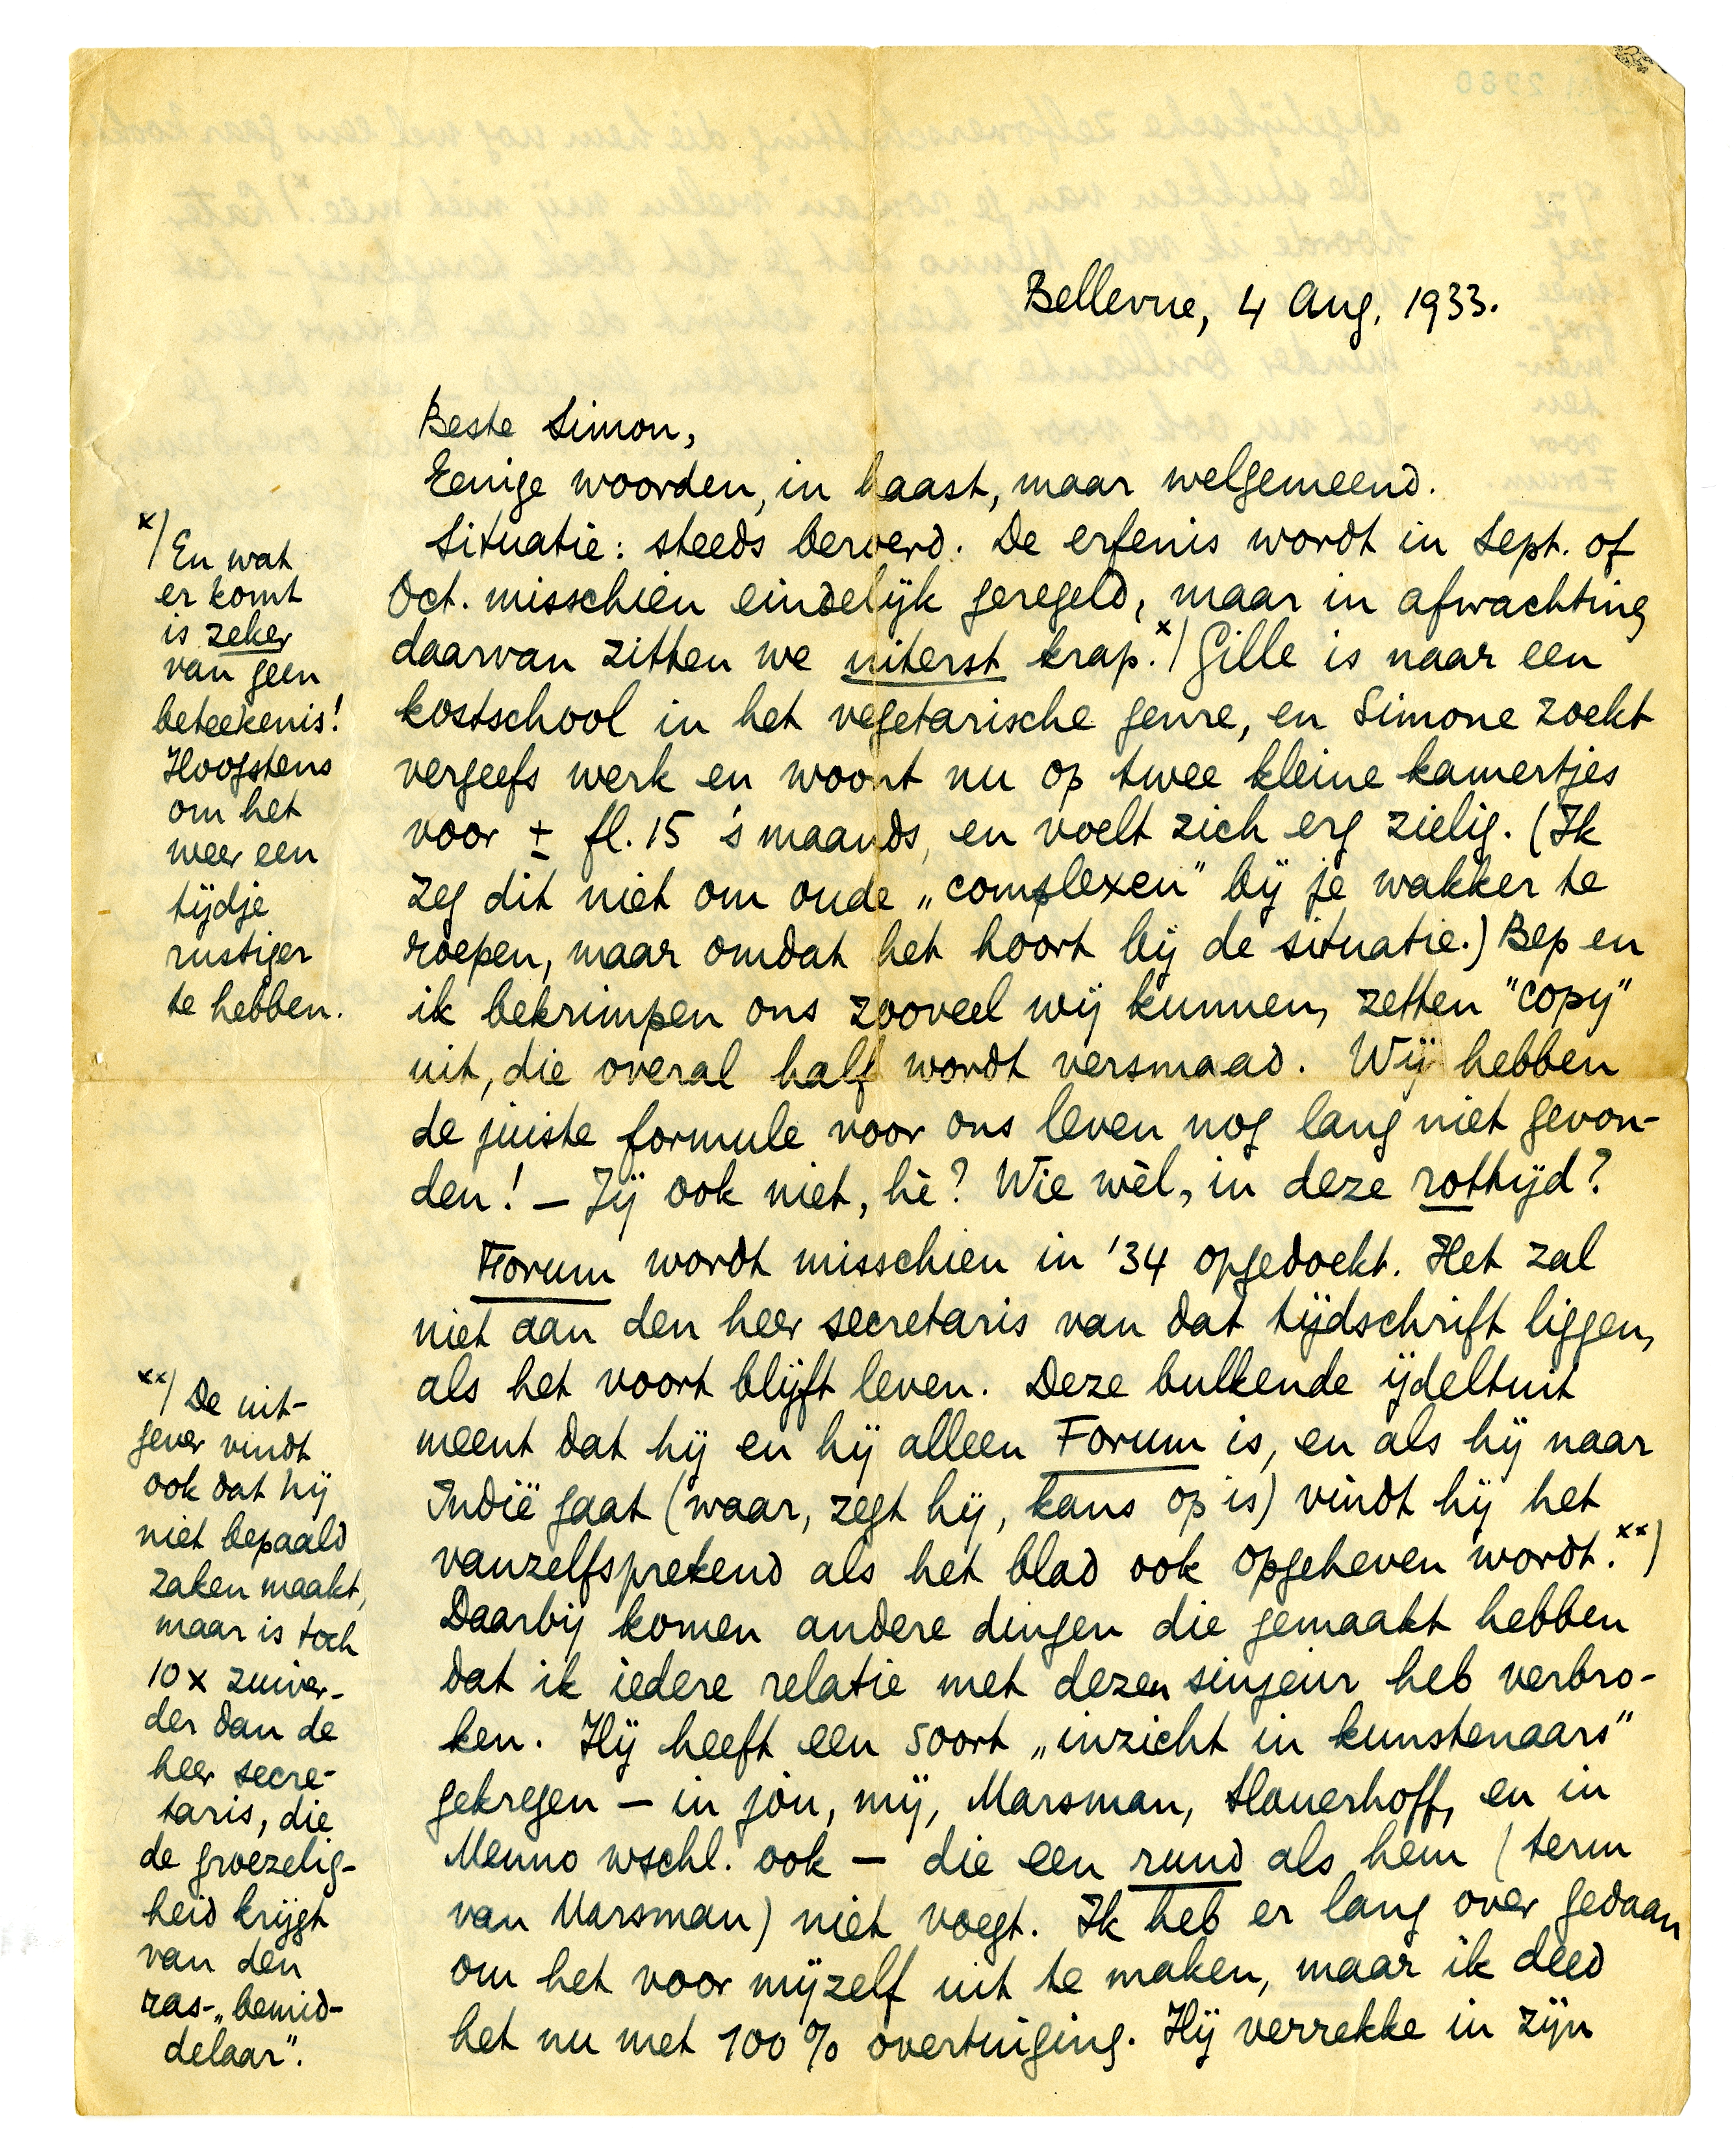 Bellevue, 4 Aug. 1933.
Beste Simon,
Eenige woorden, in haast, maar welgemeend.
Situatie: steeds beroerd. De erfenis wordt in Sept. of
Oct. misschien eindelijk geregeld, maar in afwachting
daarvan zitten we uiterst krap.x) Gille is naar een
kostschool in het vegetarische genre, en Simone zoekt
vergeefs werk en woont nu op twee kleine kamertjes
voor ± fl. 15 's maands, en voelt zich erg zielig. (Ik
zeg dit niet om oude „complexen" bij je wakker te
roepen, maar omdat het hoort bij de situatie.) Bep en
ik bekrimpen ons zooveel wij kunnen, zetten "copy"
uit, die overal half wordt versmaad. Wij hebben
de juiste formule voor ons leven nog lang niet gevon-
den! – Jij ook niet, hè? Wie wèl, in deze rottijd?
Forum wordt misschien in '34 opgedoekt. Het zal
niet aan den heer secretaris van dat tijdschrift liggen,
als het voort blijft leven. Deze bulkende ijdeltuit
meent dat hij en hij alleen Forum is, en als hij naar
Indië gaat (waar, zegt hij, kans op is) vindt hij het
vanzelfsprekend als het blad ook opgeheven wordt.xx)
Daarbij komen andere dingen die gemaakt hebben
dat ik iedere relatie met dezen sinjeur heb verbro-
ken. Hij heeft een soort „inzicht in kunstenaars"
gekregen – in jou, mij, Marsman, Slauerhoff, en in
Menno wschl. ook – die een rund als hem (term
van Marsman) niet voegt. Ik heb er lang over gedaan
om het voor mijzelf uit te maken, maar ik deed
het nu met 100% overtuiging. Hij verrekke in zijn
x) En wat
er komt
is zeker
van geen
beteekenis!
Hoogstens
om het
weer een
tijdje
rustiger
te hebben.
xx) De uit-
gever vindt
ook dat hij
niet bepaald
zaken maakt,
maar is toch
10 x zuiver-
der dan de
heer secre-
taris, die
de groezelig-
heid krijgt
van den
ras-„bemid-
delaar".